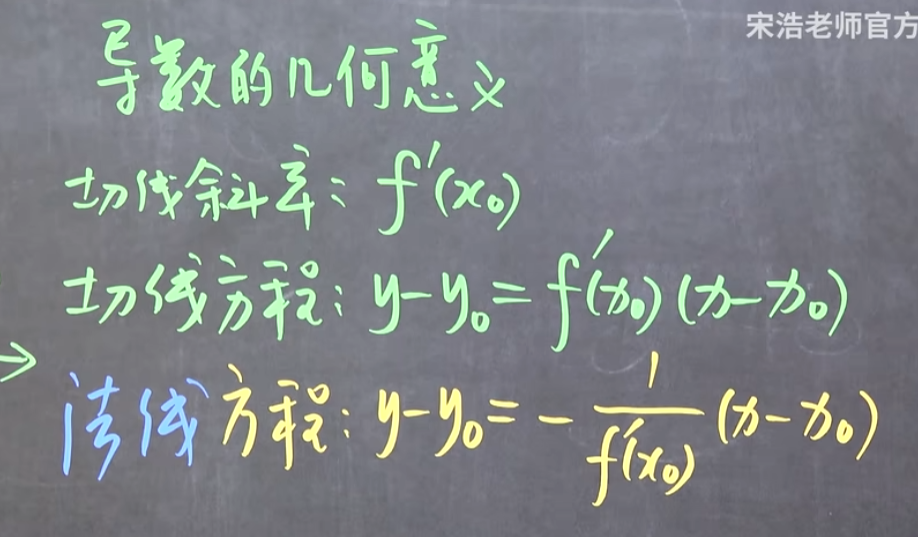 宋浩老师官方
导数的几何意义
切线斜率: f′(x₀)
切线方程: y-y₀=f′(x₀)(x-x₀)
→
法线方程: y-y₀=-1/f′(x₀)(x-x₀)